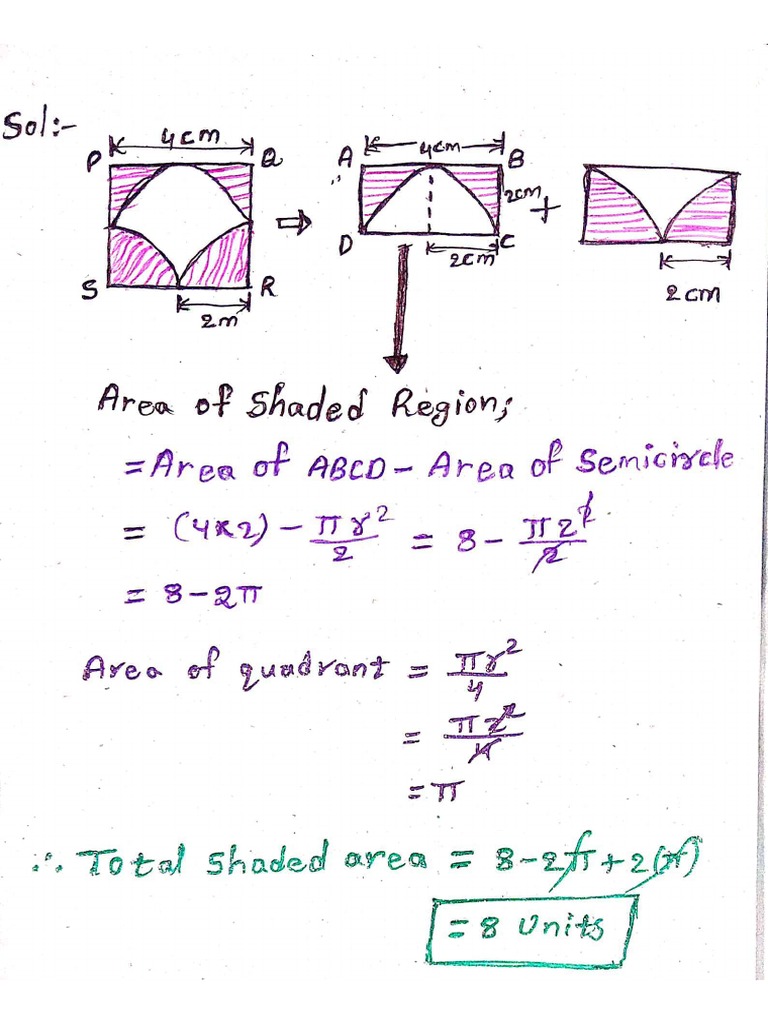 Sol:-
4cm
P Q
S R
2m
⇒
A 4cm B
2cm
D C
2cm
+
2cm
Area of Shaded Region;
= Area of ABCD - Area of Semicircle
= (4x2) - πr²/2 = 8 - π2²/2
= 8-2π
Area of quadrant = πr²/4
= π2²/4
= π
∴ Total shaded area = 8-2π+2(π)
= 8 Units